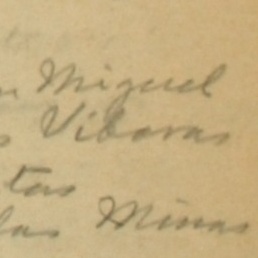 n Miguel
s Viboras
tas
las Minas